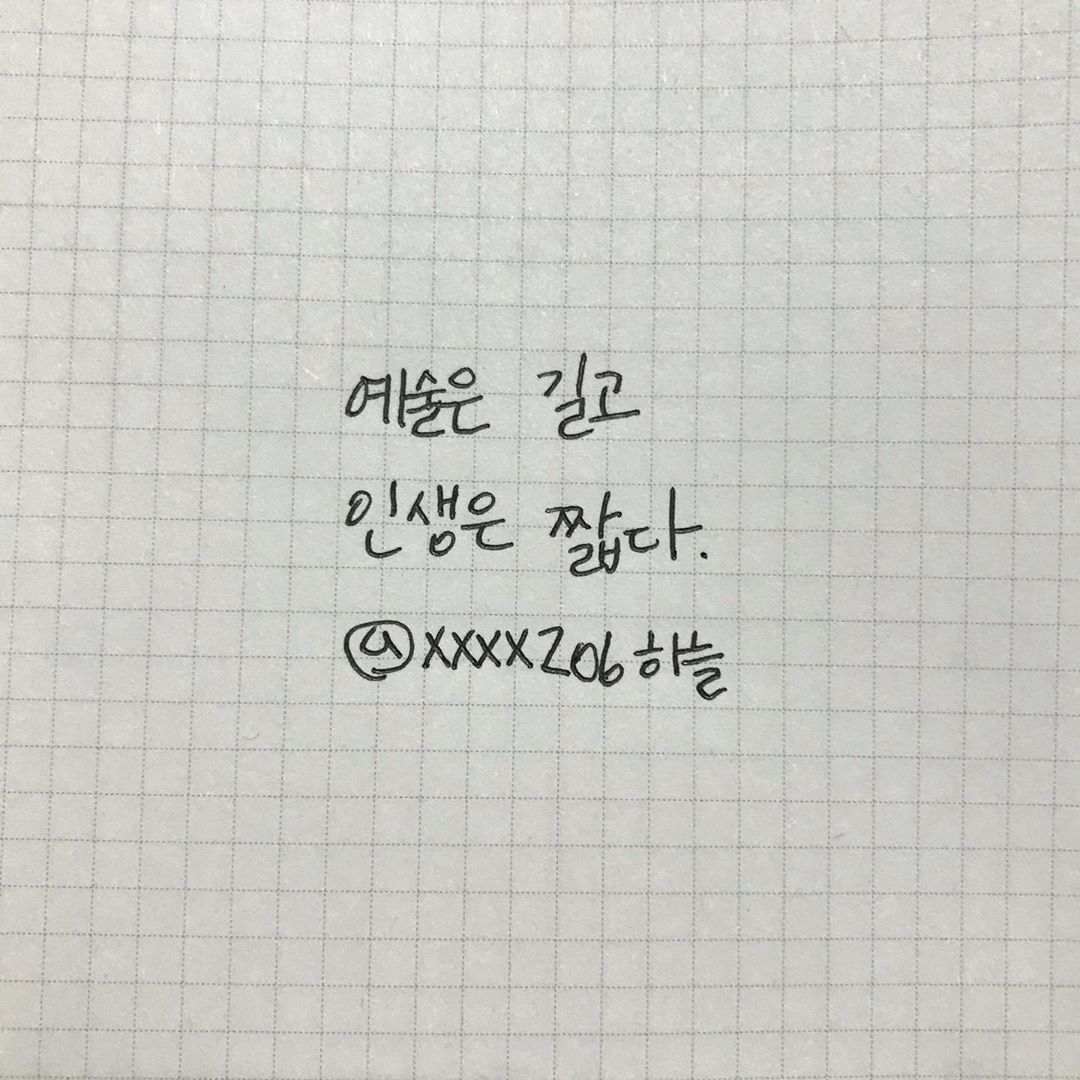 예술은 길고
인생은 짧다.
@xxxx206하늘